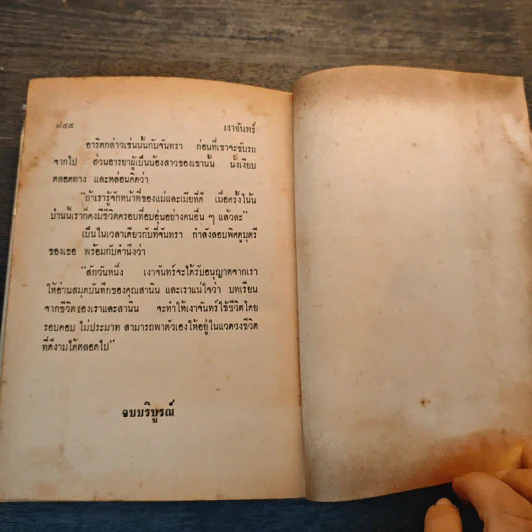 ๗๕๕ เงาจันทร์
อาริตกล่าวเช่นนั้นกับจันทรา ก่อนที่เขาจะขับรถ
จากไป ส่วนอารยาผู้เป็นน้องสาวของเขานั้น นั่งเงียบ
ตลอดทาง และหล่อนคิดว่า
"ถ้าเรารู้จักหน้าที่ของแม่และเมียที่ดี เมื่อครั้งโน้น
ป่านนี้เราก็คงมีชีวิตครอบที่อบอุ่นอย่างคนอื่น ๆ แล้วละ"
เป็นในเวลาเดียวกับที่จันทรา กำลังสอบพิศดูบุตรี
ของเธอ พร้อมกับคำนึงว่า
"สักวันหนึ่ง เงาจันทร์จะได้รับอนุญาตจากเรา
ให้อ่านสมุดบันทึกของคุณสานิน และเราแน่ใจว่า บทเรียน
จากชีวิตของเราและสานิน จะทำให้เงาจันทร์ใช้ชีวิตโดย
รอบคอบ ไม่ประมาท สามารถพาตัวเองให้อยู่ในแวดวงชีวิต
ที่ดีงามได้ตลอดไป"
จบบริบูรณ์